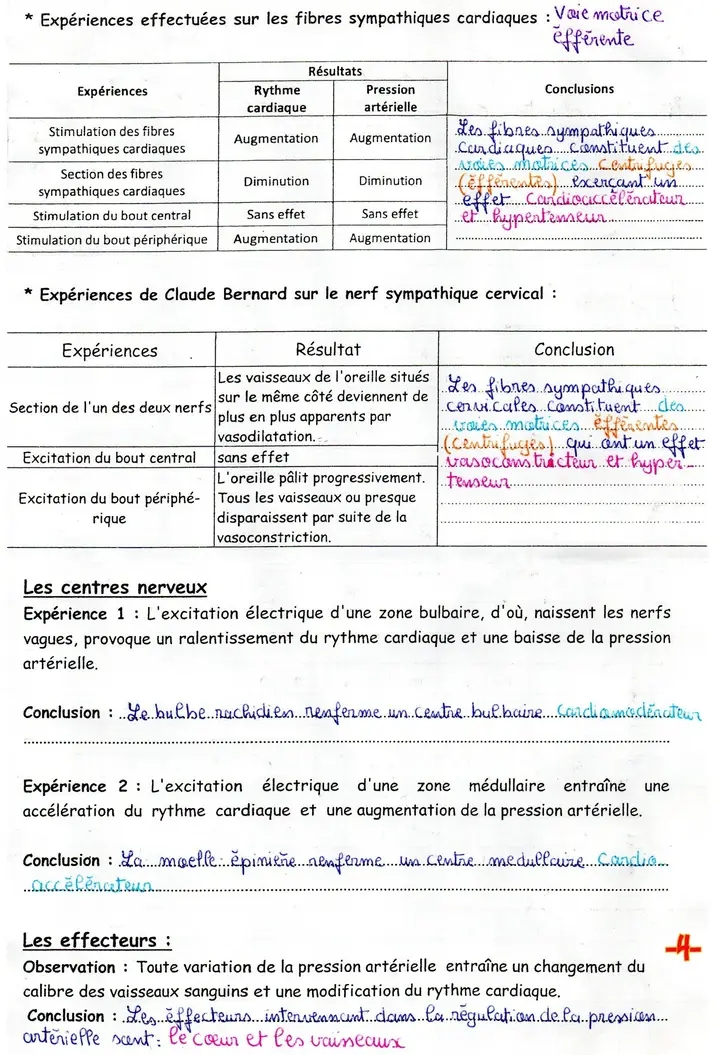 * Expériences effectuées sur les fibres sympathiques cardiaques : Voie motrice
éfférente
Expériences
Résultats
Conclusions
Rythme cardiaque
Pression artérielle
Stimulation des fibres sympathiques cardiaques
Augmentation
Augmentation
Section des fibres sympathiques cardiaques
Diminution
Diminution
Stimulation du bout central
Sans effet
Sans effet
Stimulation du bout périphérique
Augmentation
Augmentation
Les fibres sympathiques
Cardiaques constituent des
voies motrices centrifuges
(éfférentes) exerçant un
effet Cardioaccélérateur
et hypertenseur
* Expériences de Claude Bernard sur le nerf sympathique cervical :
Expériences
Résultat
Conclusion
Section de l'un des deux nerfs
Les vaisseaux de l'oreille situés
sur le même côté deviennent de
plus en plus apparents par
vasodilatation.
Excitation du bout central
sans effet
Excitation du bout périphé-
rique
L'oreille pâlit progressivement.
Tous les vaisseaux ou presque
disparaissent par suite de la
vasoconstriction.
Les fibres sympathiques
cervicales constituent des
voies motrices éfférentes
(centrifuges) qui ont un effet
vasoconstricteur et hyper-
tenseur
Les centres nerveux
Expérience 1 : L'excitation électrique d'une zone bulbaire, d'où, naissent les nerfs
vagues, provoque un ralentissement du rythme cardiaque et une baisse de la pression
artérielle.
Conclusion : Le bulbe rachidien renferme un centre bulbaire Cardiomodérateur
Expérience 2 : L'excitation électrique d'une zone médullaire entraîne une
accélération du rythme cardiaque et une augmentation de la pression artérielle.
Conclusion : La moelle épinière renferme un centre medullaire Cardio
accélérateur
Les effecteurs :
-4-
Observation : Toute variation de la pression artérielle entraîne un changement du
calibre des vaisseaux sanguins et une modification du rythme cardiaque.
Conclusion : Les éffecteurs intervennant dans la régulation de la pression
artérielle sont : le coeur et les vaisseaux